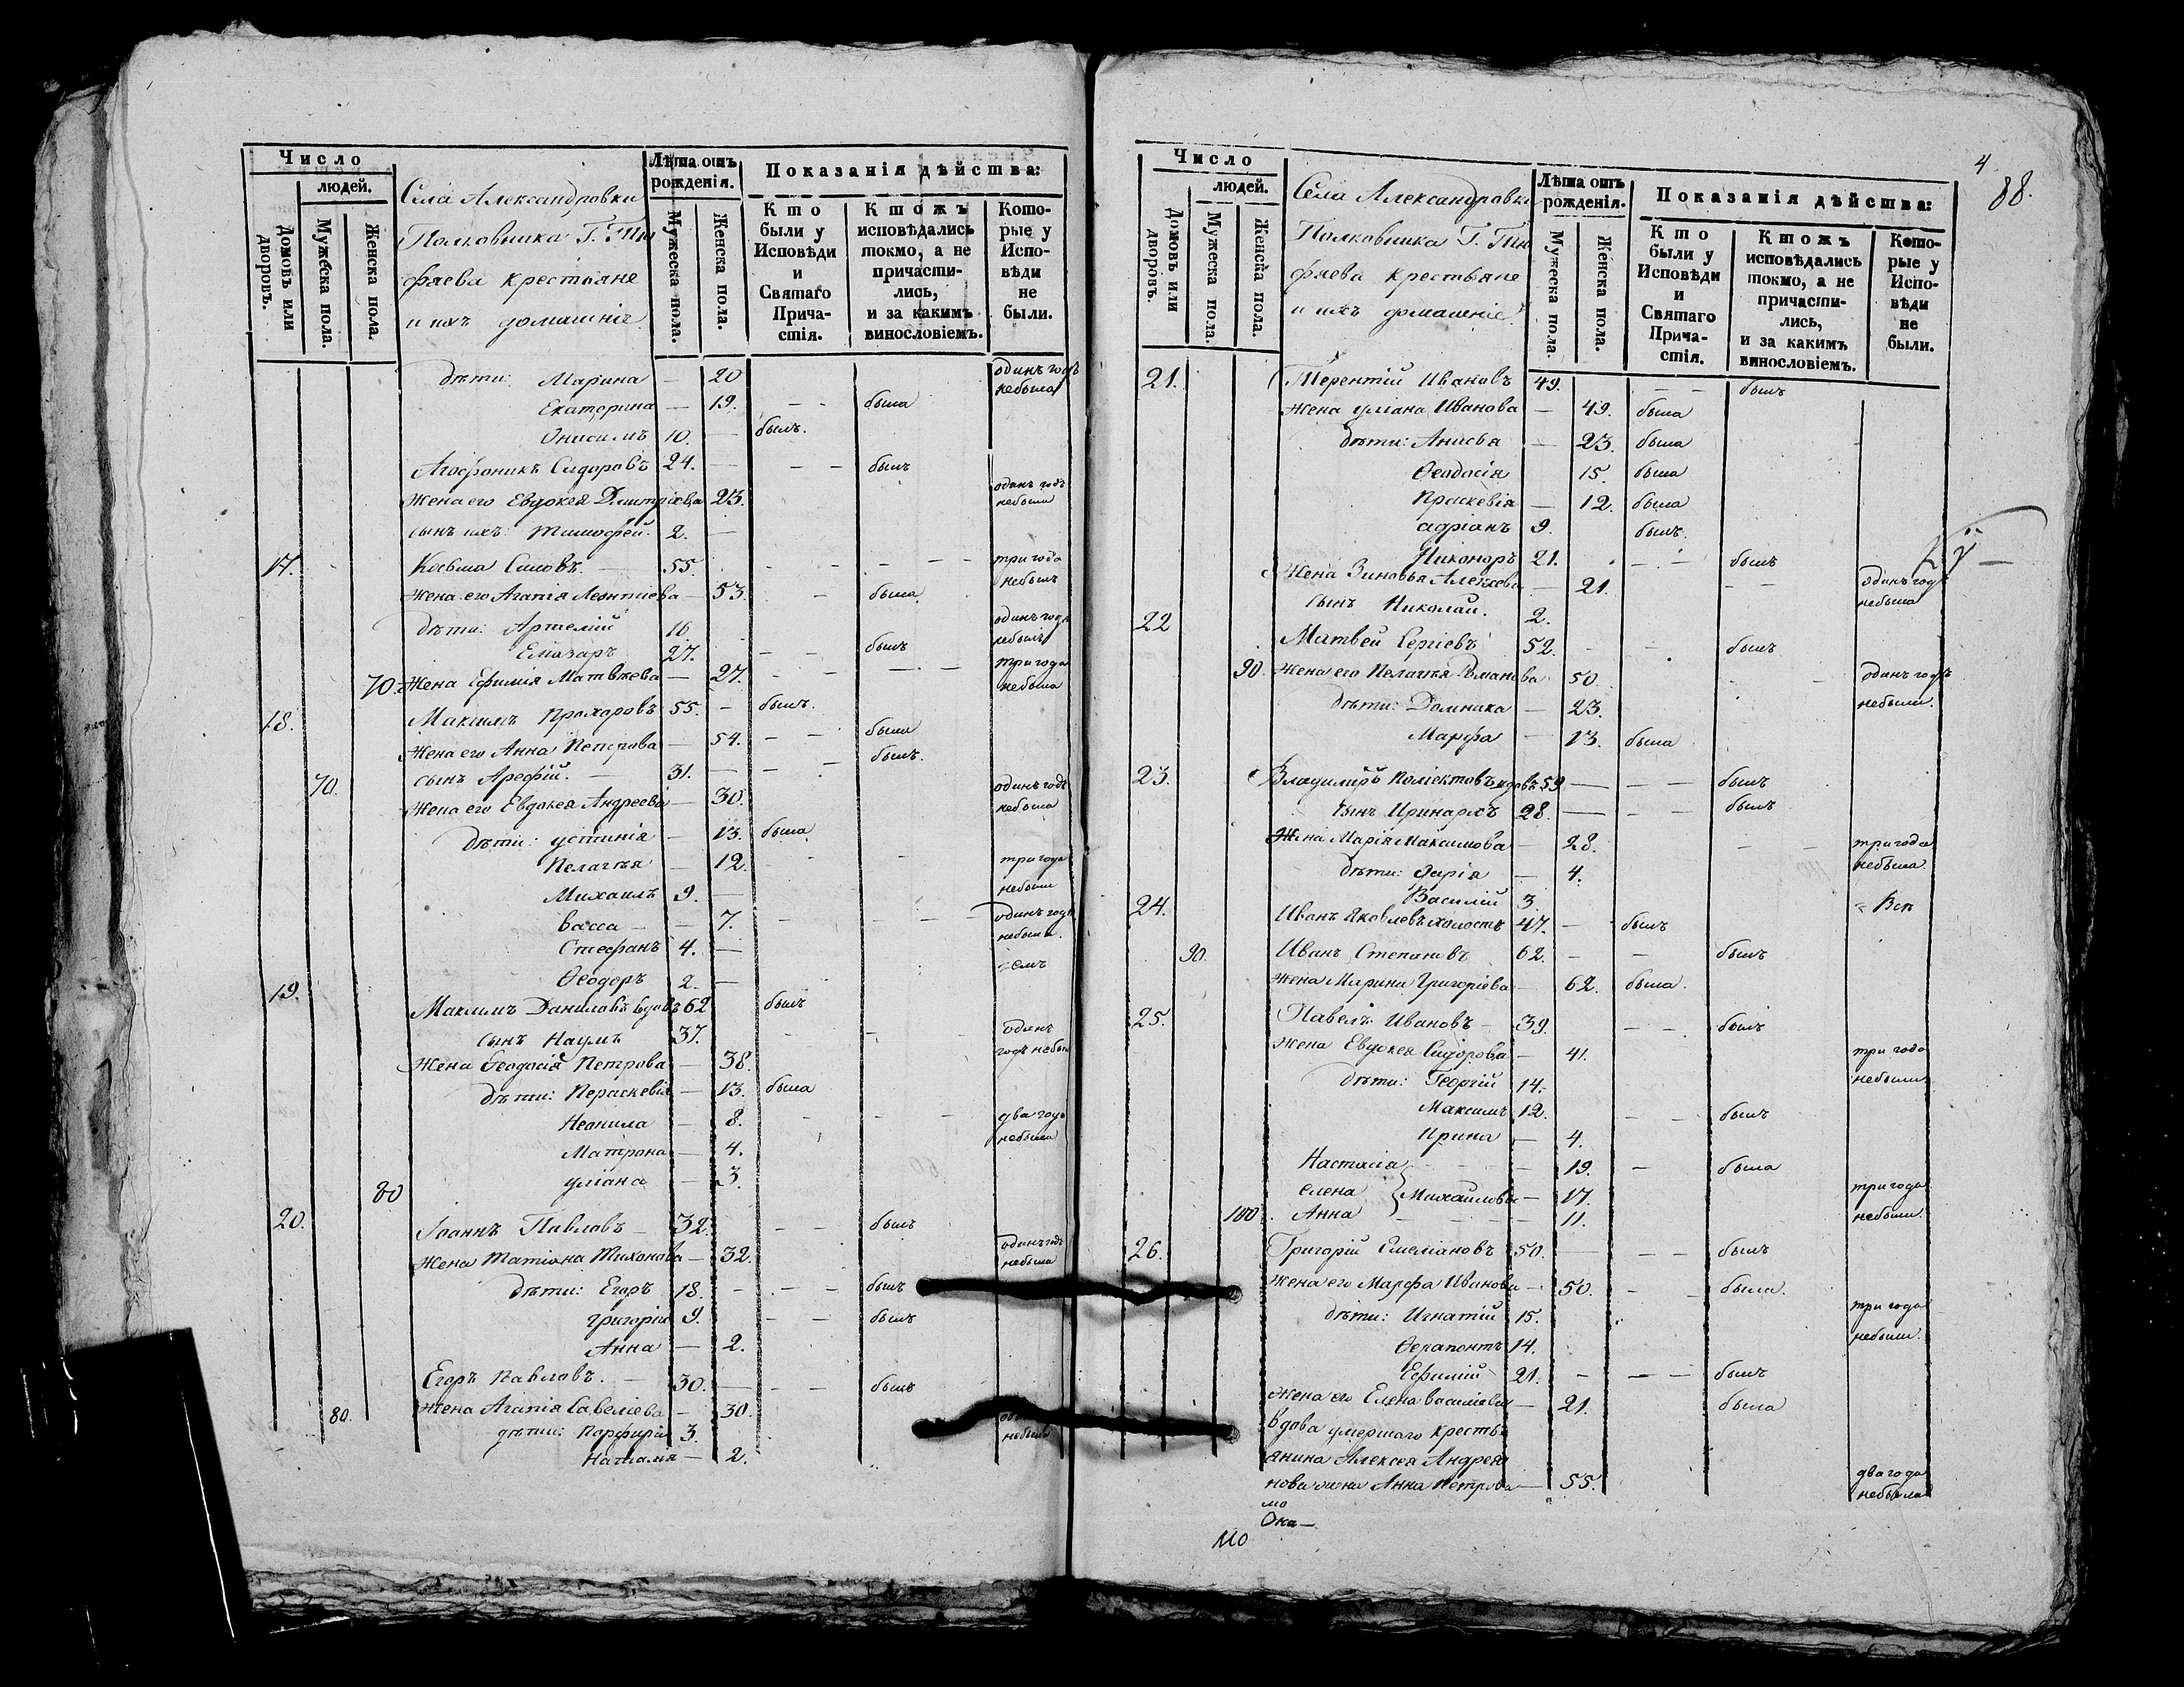 Число
людей.
Домовъ или дворовъ.
Мужеска пола.
Женска пола.
Села Александровки
Полковника Г. Тию
фяева крестьяне
и ихъ домашніе.
Лѣта отъ рожденія.
Мужеска пола.
Женска пола.
Показанія дѣйства:
Кто были у Исповѣди и Святаго Причастія.
Ктожъ исповѣдались токмо, а не причастились, и за какимъ винословіемъ.
Которые у Исповѣди не были.
дѣти: Марина — 20 одинъ годъ небыла
Екатерина — 19. — - была
Онисимъ 10. — былъ.
Агафоникъ Сидоровъ 24. — — — былъ
Жена его Евдокея Дмитріева 23. одинъ годъ небыла
сынъ ихъ: Тимофей. 2. —
17. Косьма 55. три года небылъ
жена его Агапія Леонтіева — 53. — была
дѣти: Артемій 16. одинъ годъ небылъ
Елиазаръ 27. — — былъ
70. Жена Ефимія Матвѣева — 27. три года небыла
18. Максимъ Прохоровъ 55. — былъ.
жена его Анна Петрова — 54. — — была
сынъ Арефій. — 31. — — — былъ.
70. жена его Евдокея Андреева — 30. одинъ годъ небыла
дѣти: устинія — 13. была
Пелагѣя — 12. три года
Михаилъ 9. — небыли
васса — — 7. — — — — одинъ годъ небыла.
Стефанъ 4. —
Ѳеодоръ 2. —
19. Максимъ Даниловъ вдовъ 62 былъ
сынъ Наумъ 37. — — одинъ
Жена Ѳеодосія Петрова — 38. годъ небы
дѣти: Параскевія — 13. была
Неонила — 8. — — — два года небыла
Матрона — 4.
80 уліана — 3.
20. Іоаннъ Павловъ — 32. — — былъ
Жена Татіана Тихонова — 32. одинъ годъ небыла
дѣти: Егоръ 18. — — — былъ
григорій 9. — — былъ
Анна — 2.
Егоръ Павловъ. — 30. — — — былъ
80. Жена Агапія Савеліева — 30. небыла
дѣти: Порфирій 3.
Наталія — 2.
4
88.
Число
людей.
Домовъ или дворовъ.
Мужеска пола.
Женска пола.
Села Александровки
Полковника Г. Тию
фяева крестьяне
и ихъ домашніе.
Лѣта отъ рожденія.
Мужеска пола.
Женска пола.
Показанія дѣйства:
Кто были у Исповѣди и Святаго Причастія.
Ктожъ исповѣдались токмо, а не причастились, и за какимъ винословіемъ.
Которые у Исповѣди не были.
21. Терентій Ивановъ 49. — — былъ
жена уліана Иванова — 49. была
дѣти: Анисья — 23. была
Ѳеодосія 15. была
Праскевія — 12. была
адріанъ 9. былъ.
Никоноръ 21. — — былъ
жена Зиновья Алексеева — 21. — — одинъ годъ небыла
сынъ Николай. 2.
22 Матвей Сергіевъ 52. — — былъ
90. жена его Пелагѣя Романова 50. одинъ годъ
дѣти: Домника — 23. небыли.
Марфа — 13. была
23. Владиміръ Поліектовъ вдовъ 59 — — — былъ
сынъ Иринархъ 28. — — — былъ
Жена Марія Максимова — 28. — — три года небыла
дѣти: — 4.
Василій 3.
24. Иванъ Яковлевъ холостъ 47. — былъ
90. Иванъ Степановъ 62. — — былъ
жена Марина Григоріева — 62. была.
25. Павелъ Ивановъ — 39. — — былъ
жена Евдокея Сидорова — 41. три года
дѣти: Георгій 14. небыли
Максимъ 12. — — былъ
Ирина — 4.
Настасія — 19. — была
елена } Михайловы — 17. три года
100. Анна — — — 11. небыли.
26. Григорій Емеліановъ 50. — — — былъ
жена его Марфа Иванова — 50. — — была.
дѣти: Игнатій 15. три года
Ѳерапонтъ 14. небыли.
Ефимій 21. — — — былъ
жена его Елена василіева — 21. была
Вдова умершаго кресть
янина Алексея Андреа
нова жена Анна Петрова — 55. два года небыла
Ока —
110